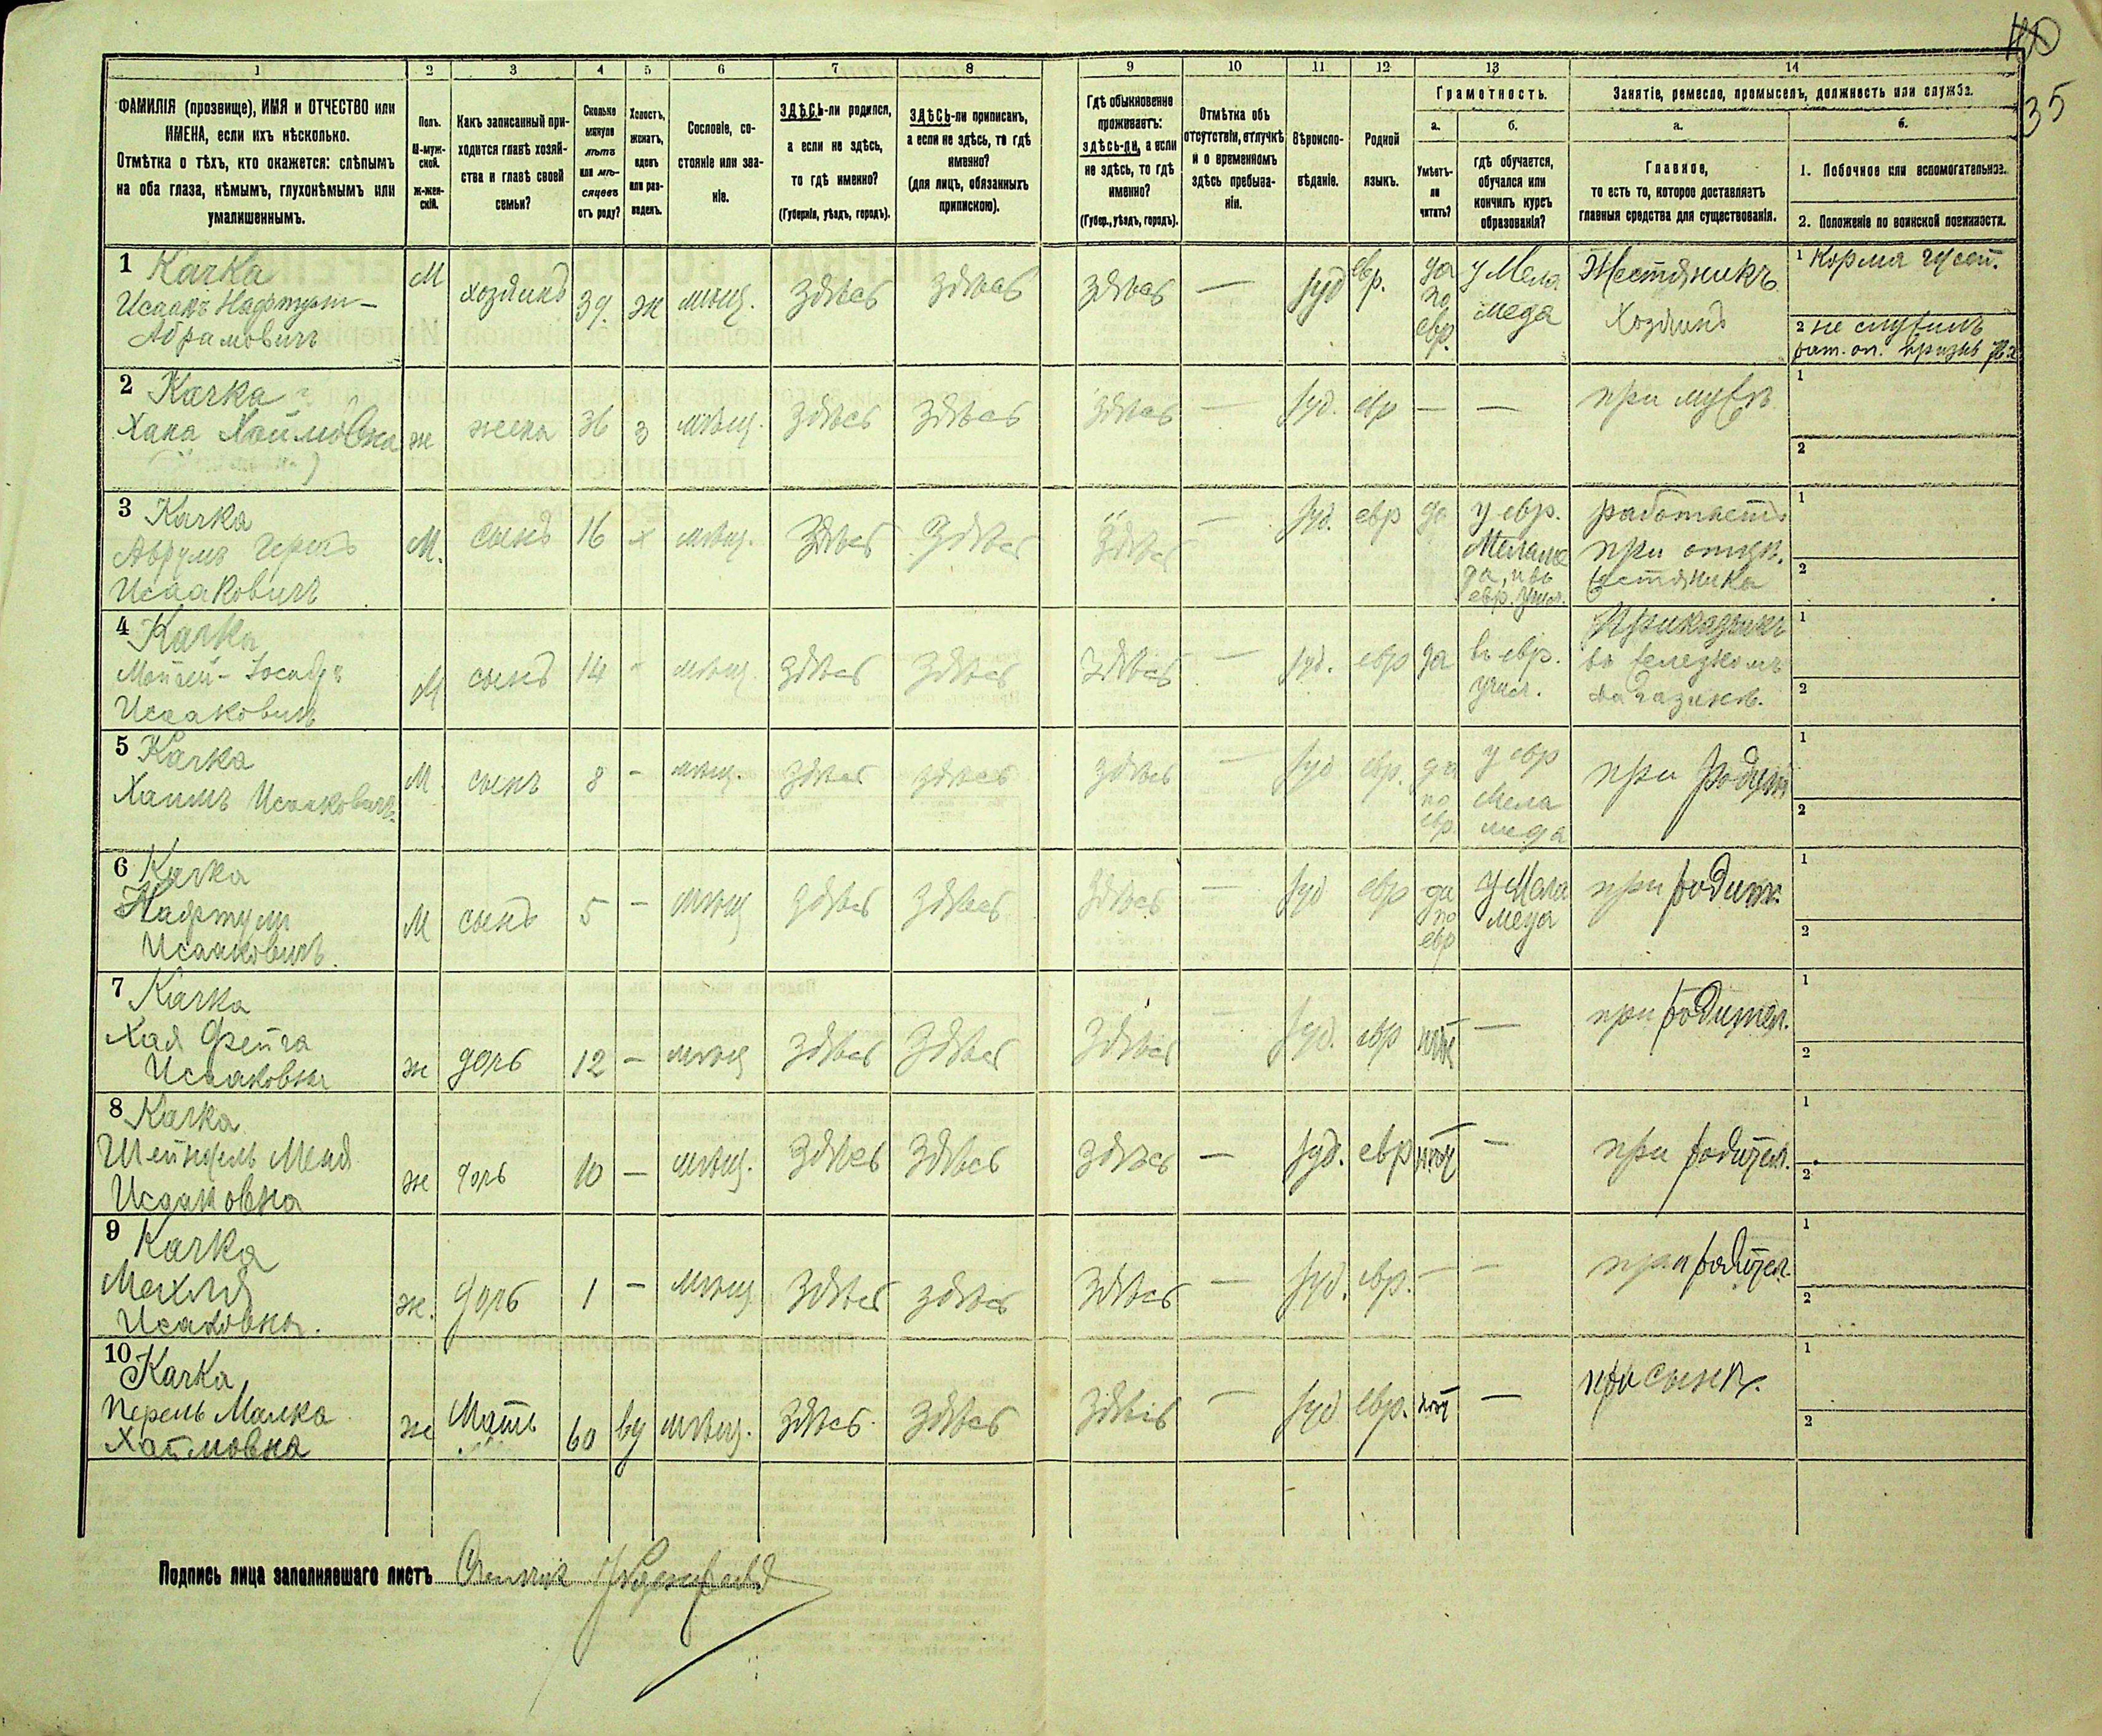 35
1 2 3 4 5 6 7 8 9 10 11 12 13 14
ФАМИЛІЯ (прозвище), ИМЯ и ОТЧЕСТВО или
ИМЕНА, если ихъ нѣсколько.
Отмѣтка о тѣхъ, кто окажется: слѣпымъ
на оба глаза, нѣмымъ, глухонѣмымъ или
умалишеннымъ.
Полъ.
М-муж-
ской.
ж-жен-
скій.
Какъ записанный при-
ходится главѣ хозяй-
ства и главѣ своей
семьи?
Сколько
минуло
лѣтъ
или мѣ-
сяцевъ
отъ роду?
Холостъ,
женатъ,
вдовъ
или раз-
веденъ.
Сословіе, со-
стояніе или зва-
ніе.
ЗДѢСЬ-ли родился,
а если не здѣсь,
то гдѣ именно?
(Губернія, уѣздъ, городъ).
ЗДѢСЬ-ли приписанъ,
а если не здѣсь, то гдѣ
именно?
(для лицъ, обязанныхъ
припискою).
Гдѣ обыкновенно
проживаетъ:
здѣсь-ли, а если
не здѣсь, то гдѣ
именно?
(Губер., уѣздъ, городъ).
Отмѣтка объ
отсутствіи, отлучкѣ
и о временномъ
здѣсь пребыва-
ніи.
Вѣроиспо-
вѣданіе.
Родной
языкъ.
Грамотность.
а.
Умѣетъ-
ли
читать?
б.
гдѣ обучается,
обучался или
кончилъ курсъ
образованія?
Занятіе, ремесло, промыселъ, должность или служба.
а.
Главное,
то есть то, которое доставляетъ
главныя средства для существованія.
б.
1. Побочное или вспомогательное.
2. Положеніе по воинской повинности.
1 Качка
Исаакъ Нафтули-
Абрамовичъ
М хозяинъ 39. ж мѣщ. здѣсь здѣсь здѣсь — іуд евр.
да
по
евр.
у Мела
меда
Жестяникъ
Хозяинъ
1
2 не служилъ
2 Качка
Хана Хаймовна
ж жена 36 з мѣщ. здѣсь здѣсь здѣсь — іуд. евр — — при мужѣ
1
2
3 Качка
Аврумъ Герть
Исааковичъ
М. сынъ 16 х мѣщ. здѣсь здѣсь здѣсь — іуд. евр да
у евр.
Меламе
да, и въ
евр. учил.
работаетъ
при отцѣ.
жестяника
1
2
4 Качка
Исааковичъ
М сынъ 14 - мѣщ. здѣсь здѣсь здѣсь — іуд. евр да
въ евр.
учил.
Приказчикъ
въ желѣзномъ
магазинѣ.
1
2
5 Качка
Хаимъ Исааковичъ.
М сынъ 8 - мѣщ. здѣсь здѣсь здѣсь — іуд евр.
да
по
евр.
у евр
Мела
меда
при родит
1
2
6 Качка
Нафтули
Исааковичъ.
М сынъ 5 - мѣщ здѣсь здѣсь здѣсь — іуд евр
да
по
евр
у Мела
меда
при родит.
1
2
7 Качка
Хая Фейга
Исааковна
ж дочь 12 - мѣщ здѣсь здѣсь здѣсь — іуд. евр нѣт — при родител.
1
2
8 Качка
Шейндель Меня
Исааковна
ж дочь 10 — мѣщ. здѣсь здѣсь здѣсь — іуд. евр нѣт — при родител.
1
2
9 Качка
Махля
Исаковна.
ж. дочь 1 - мѣщ здѣсь здѣсь здѣсь — іуд. евр. — — при родител.
1
2
10 Качка
Перель Малка
Хаймовна
ж Мать 60 вд мѣщ. здѣсь здѣсь здѣсь — іуд евр. нѣт — при сынѣ.
1
2
Подпись лица заполнявшаго листъ